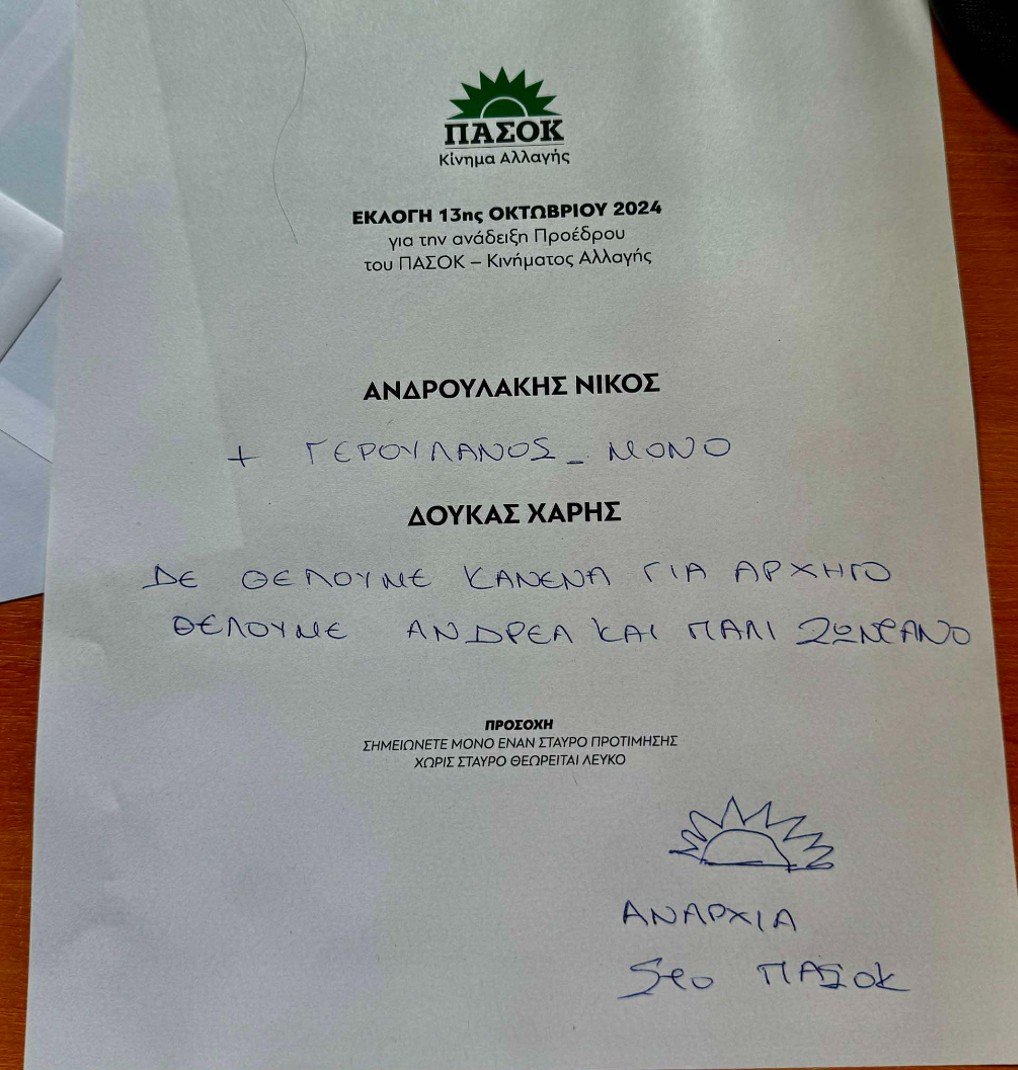 ΠΑΣΟΚ
Κίνημα Αλλαγής
ΕΚΛΟΓΗ 13ης ΟΚΤΩΒΡΙΟΥ 2024
για την ανάδειξη Προέδρου
του ΠΑΣΟΚ – Κινήματος Αλλαγής
ΑΝΔΡΟΥΛΑΚΗΣ ΝΙΚΟΣ
+ ΓΕΡΟΥΛΑΝΟΣ - ΜΟΝΟ
ΔΟΥΚΑΣ ΧΑΡΗΣ
ΔΕ ΘΕΛΟΥΜΕ ΚΑΝΕΝΑ ΓΙΑ ΑΡΧΗΓΟ
ΘΕΛΟΥΜΕ ΑΝΔΡΕΑ ΚΑΙ ΠΑΛΙ ΖΩΝΤΑΝΟ
ΠΡΟΣΟΧΗ
ΣΗΜΕΙΩΝΕΤΕ ΜΟΝΟ ΕΝΑΝ ΣΤΑΥΡΟ ΠΡΟΤΙΜΗΣΗΣ
ΧΩΡΙΣ ΣΤΑΥΡΟ ΘΕΩΡΕΙΤΑΙ ΛΕΥΚΟ
ΑΝΑΡΧΙΑ
Στο ΠΑΣΟΚ